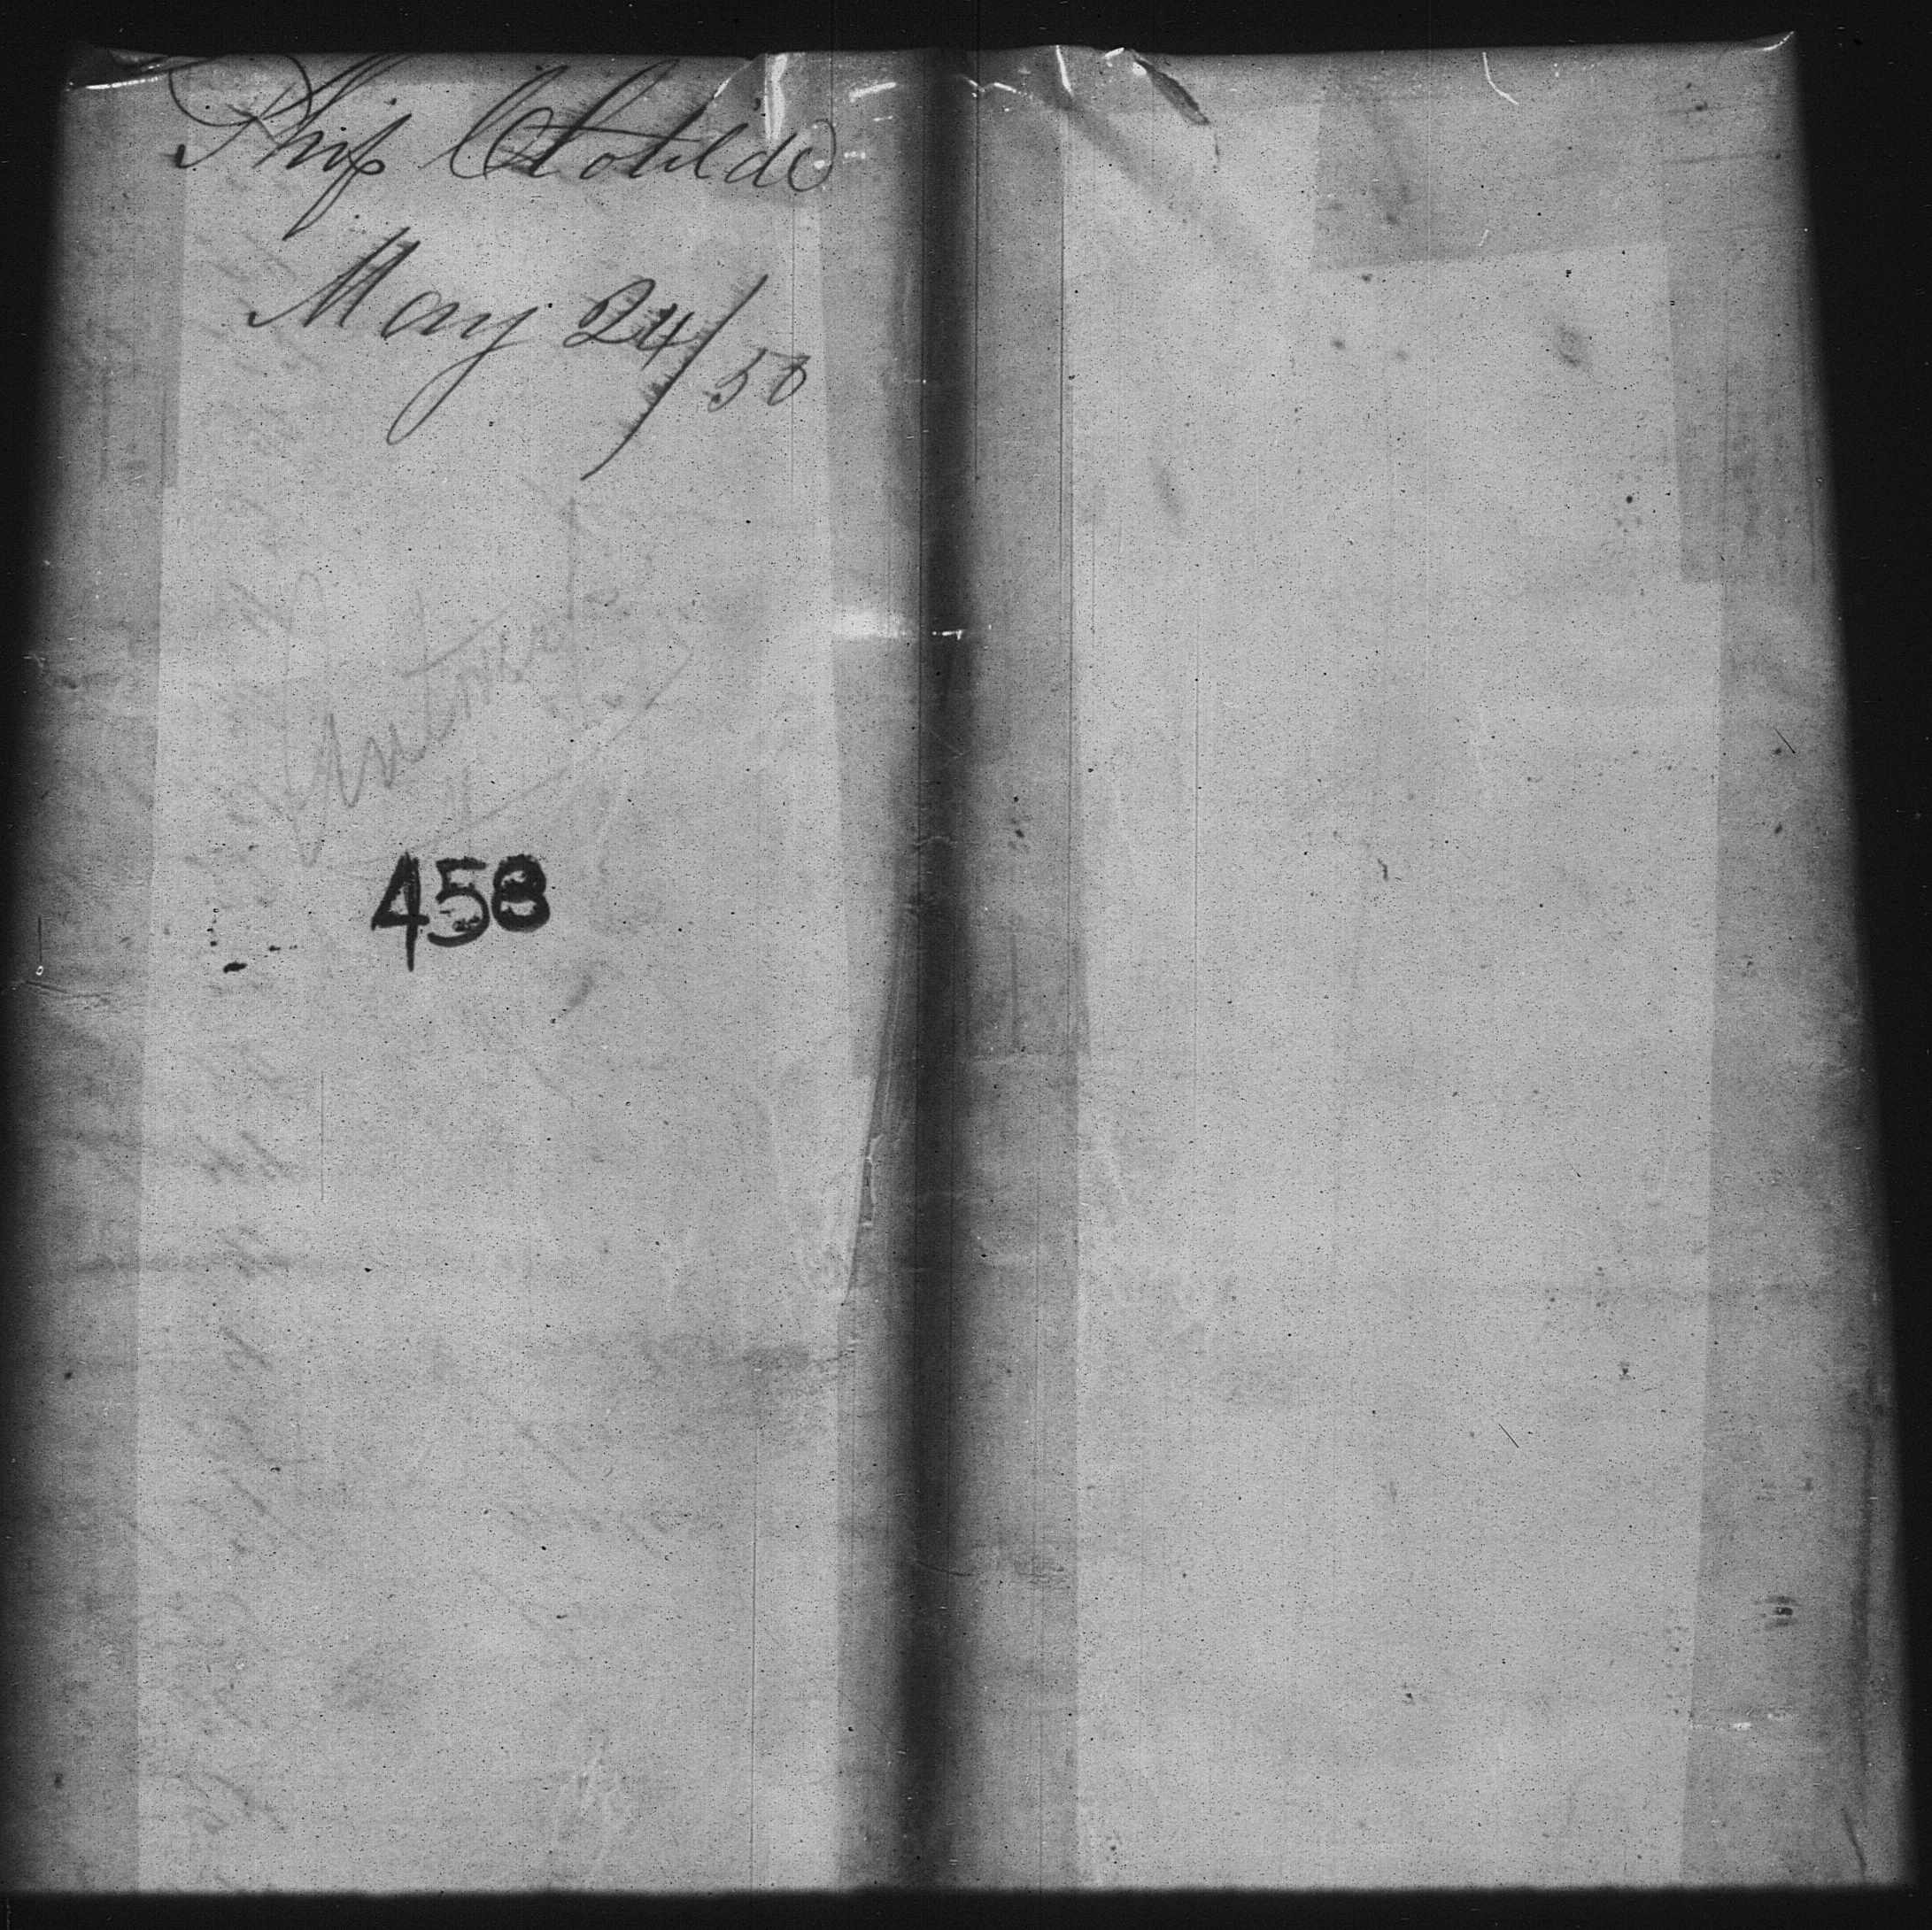 Ship Clotilde
May 24/50
458